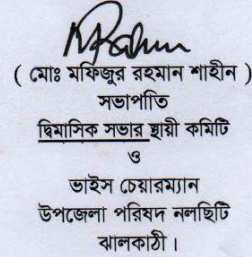 ( মোঃ মফিজুর রহমান শাহীন )
সভাপতি
দ্বিমাসিক সভার স্থায়ী কমিটি
ও
ভাইস চেয়ারম্যান
উপজেলা পরিষদ নলছিটি
ঝালকাঠী।